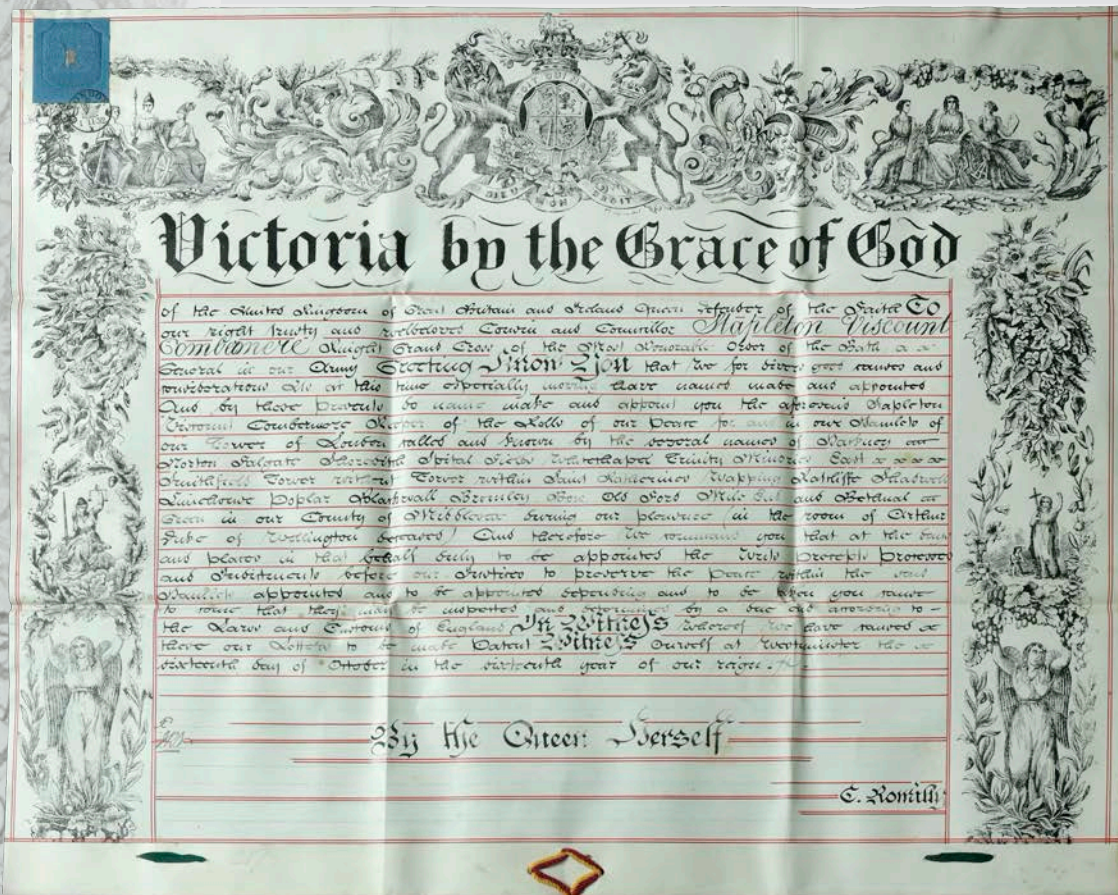 DIEU ET MON DROIT
Victoria by the Grace of God
of the United Kingdom of Great Britain and Ireland Queen Defender of the Faith To
our right trusty and welbeloved Cousin and Councillor Stapleton Viscount
Combermere Knight Grand Cross of the Most Honorable Order of the Bath a
General in our Army Greeting Know You that We for divers good causes and
considerations Us at this time especially moving have named made and appointed
And by these Presents do name make and appoint you the aforesaid Stapleton
Viscount Combermere Keeper of the Rolls of our Peace for and in our Hamlets of
our Tower of London called and known by the several names of
Norton Falgate Shoreditch Spital Fields Whitechapel Trinity Minories East
Smithfield Tower without Tower within Saint Katherines Wapping Ratcliffe Shadwell
Limehouse Poplar Blackwall Bromley Bow Old Ford Mile End and Bethnal
Green in our County of Middlesex during our pleasure (in the room of Arthur
Duke of Wellington deceased) And therefore We command you that at the days
and places in that behalf duly to be appointed the Writs Precepts Processes
and Indictments before our Justices to preserve the Peace within the said
Hamlets appointed and to be appointed depending and to be you cause
to come that they may be inspected and determined by a due end according to
the Laws and Customs of England In Witness whereof We have caused
these our Letters to be made Patent Witness Ourself at Westminster the
sixteenth day of October in the sixteenth year of our reign
By the Queen Herself
C. Romilly